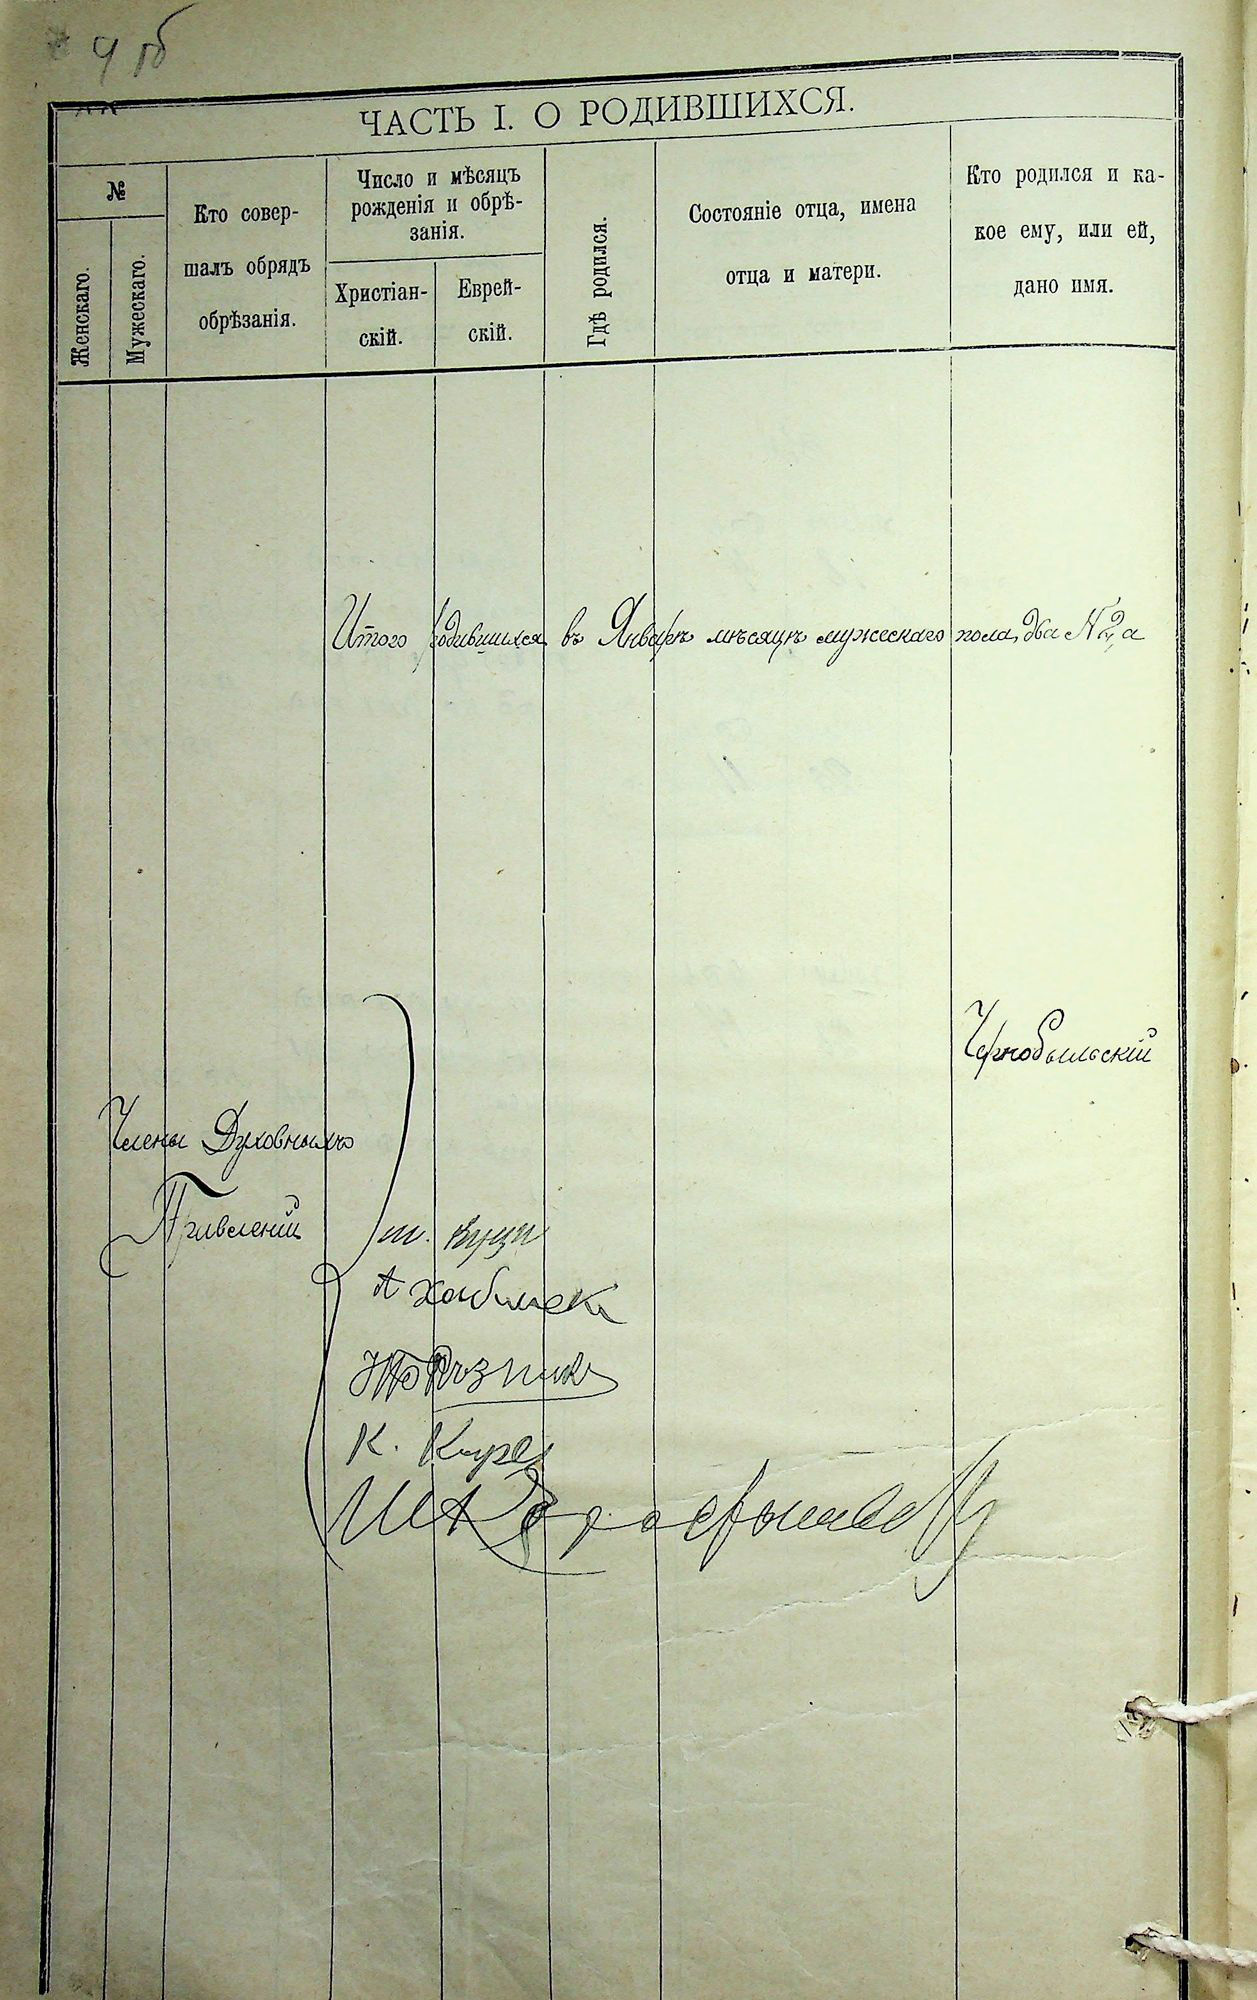 ЧАСТЬ I. О РОДИВШИХСЯ.
№
Женскаго.
Мужескаго.
Кто совер-
шалъ обрядъ
обрѣзанія.
Число и мѣсяцъ
рожденія и обрѣ-
занія.
Христіан-
скій.
Еврей-
скій.
Гдѣ родился.
Состояніе отца, имена
отца и матери.
Кто родился и ка-
кое ему, или ей,
дано имя.
Итого родившихся въ Январѣ мѣсяцѣ мужескаго пола два №2,а
Чернобыльскій
Члены Духовныхъ
Правленій
К.